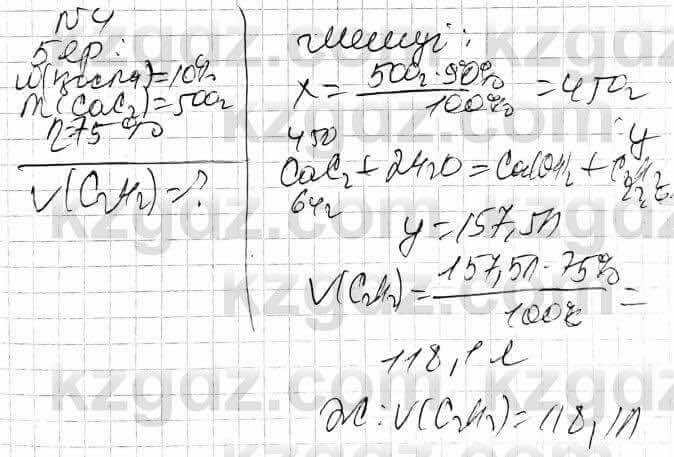 N4
Бер:
w(қоспа)=10%
m(CaC₂)=500г
η=75%
V(C₂H₂)=?
Шешуі:
x= 500г·90% / 100% =450г
450 y
CaC₂+2H₂O=Ca(OH)₂+C₂H₂
64г 22,4
y=157,5л
V(C₂H₂)= 157,5л·75% / 100% =
118,1л
Ж: V(C₂H₂)=118,1л
kzgdz.com